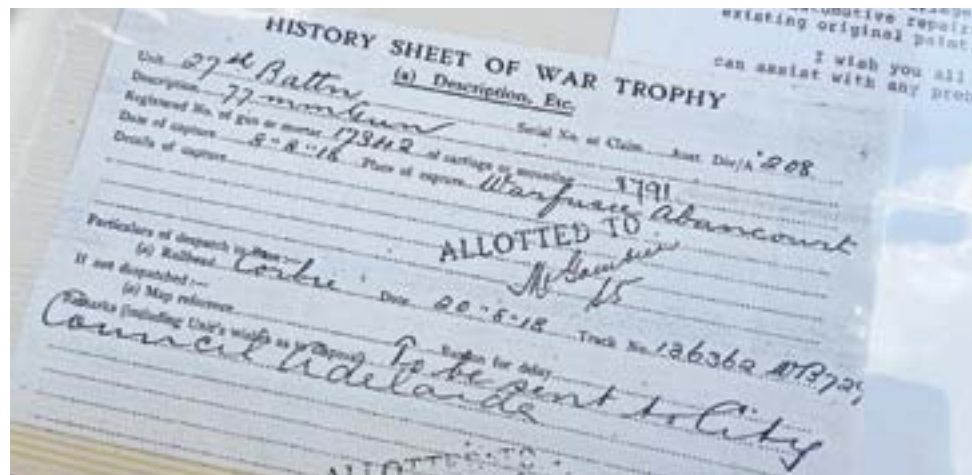 HISTORY SHEET OF WAR TROPHY
(a) Description, Etc.
Unit 27th Battn Serial No. of Claim Aust. Div/A 208
Description 77 mm Gun
Registered No. of gun or mortar 17342 of carriage or mounting 8791
Date of capture 8-8-18 Place of capture Warfusee Abancourt
Details of capture
ALLOTTED TO
Mt Gambier
15
Particulars of despatch to
(a) Railhead Corbie Date 20-8-18 Truck No. 126362
If not despatched :—
(a) Map reference Reason for delay
Remarks (including Unit's wishes as to disposal) To be sent to City
Council Adelaide
ALLOTTED TO
automotive repair
existing original paint
I wish you all
can assist with any prob